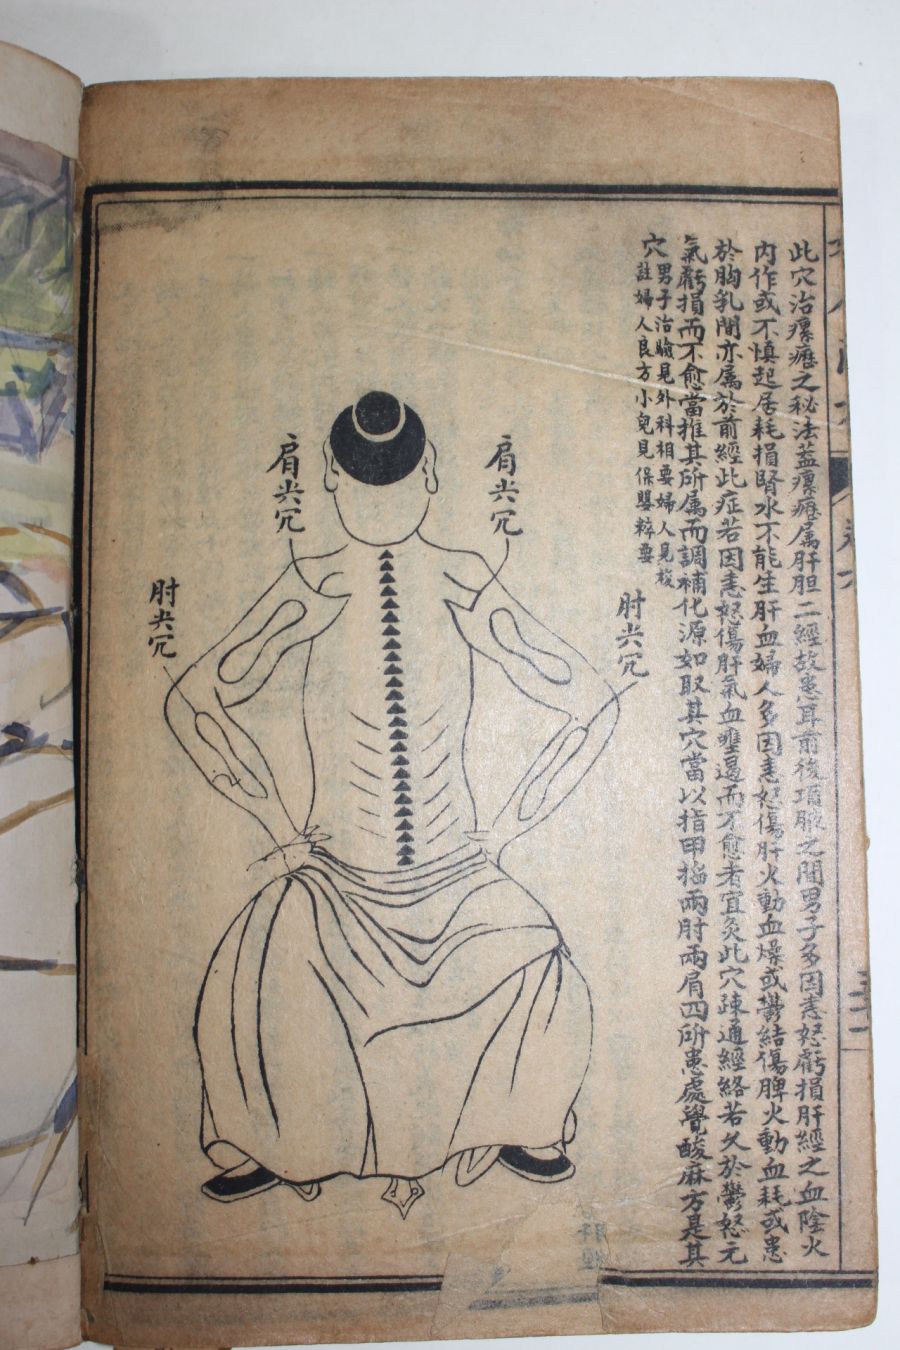 此穴治瘰癧之秘法蓋瘰癧属肝胆二經故患耳前後項腋之間男子多因恚怒虧損肝經之血陰火
内作或不慎起居耗損腎水不能生肝血婦人多因恚怒傷肝火動血燥或鬱結傷脾火動血耗或患
於胸乳間亦属於前經此症若因恚怒傷肝氣血壅遏而不愈者宜灸此穴疎通經絡若久於鬱怒元
氣虧損而不愈當推其所属而調補化源如取其穴當以指甲掐兩肘兩肩四所患處覺酸麻方是其
穴
男子治驗見外科相要婦人見校
註婦人良方小兒見保嬰粹要
肩尖穴
肩尖穴
肘尖穴
肘尖穴